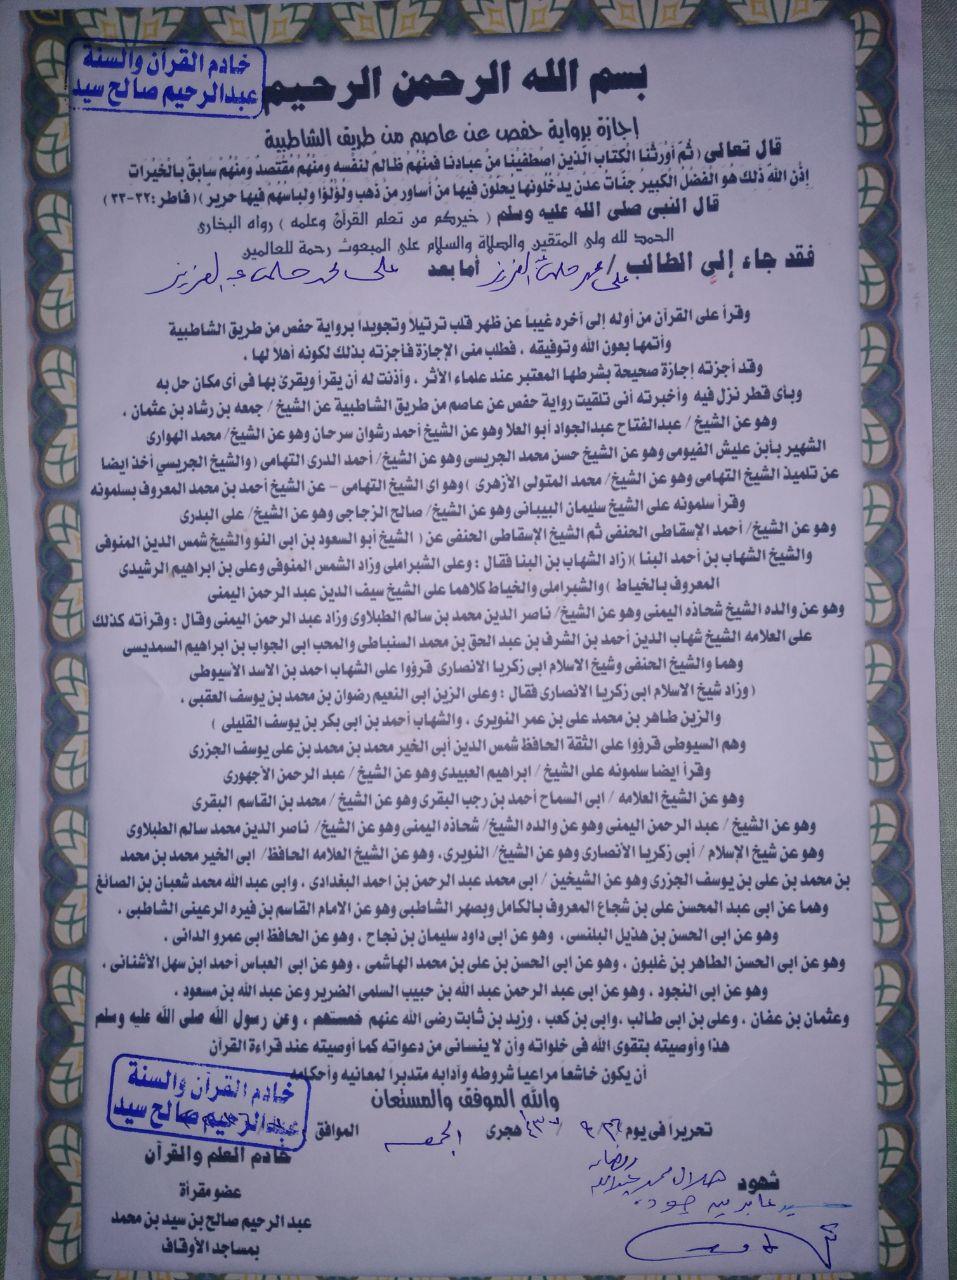 خادم القرآن والسنة
عبدالرحيم صالح سيد
بسم الله الرحمن الرحيم
إجازة برواية حفص عن عاصم من طريق الشاطبية
قال تعالى ( ثُمَّ أَوْرَثْنَا الْكِتَابَ الَّذِينَ اصْطَفَيْنَا مِنْ عِبَادِنَا فَمِنْهُمْ ظَالِمٌ لِنَفْسِهِ وَمِنْهُمْ مُقْتَصِدٌ وَمِنْهُمْ سَابِقٌ بِالْخَيْرَاتِ
بِإِذْنِ اللَّهِ ذَلِكَ هُوَ الْفَضْلُ الْكَبِيرُ جَنَّاتُ عَدْنٍ يَدْخُلُونَهَا يُحَلَّوْنَ فِيهَا مِنْ أَسَاوِرَ مِنْ ذَهَبٍ وَلُؤْلُؤًا وَلِبَاسُهُمْ فِيهَا حَرِيرٌ ) ( فاطر :٣٢-٣٣ )
قال النبى صلى الله عليه وسلم ( خيركم من تعلم القرآن وعلمه ) رواه البخارى
الحمد لله ولى المتقين والصلاة والسلام على المبعوث رحمة للعالمين
أما بعد
فقد جاء إلى الطالب / على محمد العزيز
وقرأ على القرآن من أوله إلى أخره غيباً عن ظهر قلب ترتيلاً وتجويداً برواية حفص من طريق الشاطبية
وأتمها بعون الله وتوفيقه . فطلب منى الإجازة فأجزته بذلك لكونه أهلاً لها .
وقد أجزته إجازة صحيحة بشرطها المعتبر عند علماء الأثر . وأذنت له أن يقرأ ويقرئ بها فى أى مكان حل به
وبأى قطر نزل فيه وأخبرته أنى تلقيت رواية حفص عن عاصم من طريق الشاطبية عن الشيخ / جمعه بن رشاد بن عثمان .
وهو عن الشيخ / عبدالفتاح عبدالجواد أبو العلا وهو عن الشيخ أحمد رشوان سرحان وهو عن الشيخ/ محمد الهوارى
الشهير بأبن عليش الفيومى وهو عن الشيخ حسن محمد الجريسى وهو عن الشيخ/ أحمد الدرى التهامى (والشيخ الجريسي أخذ ايضا
عن تلميذ الشيخ التهامى وهو عن الشيخ/ محمد المتولى الأزهرى ) وهو اى الشيخ التهامى - عن الشيخ أحمد بن محمد المعروف بسلمونه
وقرأ سلمونه على الشيخ سليمان البيبانى وهو عن الشيخ/ صالح الزجاجى وهو عن الشيخ/ على البدرى
وهو عن الشيخ/ أحمد الإسقاطى الحنفى ثم الشيخ الإسقاطى الحنفى عن ( الشيخ أبو السعود بن ابى النو والشيخ شمس الدين المنوفى
والشيخ الشهاب بن أحمد البنا )( زاد الشهاب بن البنا فقال : وعلى الشبراملى وزاد الشمس المنوفى وعلى بن ابراهيم الرشيدى
المعروف بالخياط ) والشبراملى والخياط كلاهما على الشيخ سيف الدين عبد الرحمن اليمنى
وهو عن والده الشيخ شحاذه اليمنى وهو عن الشيخ/ ناصر الدين محمد بن سالم الطبلاوى وزاد عبد الرحمن اليمنى وقال : وقرأته كذلك
على العلامه الشيخ شهاب الدين أحمد بن الشرف بن عبد الحق بن محمد السنباطى والمحب ابى الجواب بن ابراهيم السمديسى
وهما والشيخ الحنفى وشيخ الاسلام ابى زكريا الانصارى قرؤوا على الشهاب احمد بن الاسد الأسيوطى
( وزاد شيخ الاسلام ابى زكريا الانصارى فقال : وعلى الزين ابى النعيم رضوان بن محمد بن يوسف العقبى .
والزين طاهر بن محمد على بن عمر النويرى . والشهاب أحمد بن ابى بكر بن يوسف القليلى )
وهم السيوطى قرؤوا على الثقة الحافظ شمس الدين أبى الخير محمد بن محمد بن على يوسف الجزرى
وقرأ ايضا سلمونه على الشيخ / ابراهيم العبيدى وهو عن الشيخ / عبد الرحمن الأجهورى
وهو عن الشيخ العلامه / ابى السماح أحمد بن رجب البقرى وهو عن الشيخ / محمد بن القاسم البقرى
وهو عن الشيخ / عبد الرحمن اليمنى وهو عن والده الشيخ/ شحاذه اليمنى وهو عن الشيخ/ ناصر الدين محمد سالم الطبلاوى
وهو عن شيخ الإسلام / أبى زكريا الأنصارى وهو عن الشيخ/ النويرى، وهو عن الشيخ العلامه الحافظ/ ابى الخير محمد بن محمد
بن محمد بن على بن يوسف الجزرى وهو عن الشيخين / ابى محمد عبد الرحمن بن احمد البغدادى . وابى عبد الله محمد شعبان بن الصائغ
وهما عن ابى عبد المحسن على بن شجاع المعروف بالكامل وبصهر الشاطبى وهو عن الامام القاسم بن فيره الرعينى الشاطبى .
وهو عن ابى الحسن بن هذيل البلنسى . وهو عن ابى داود سليمان بن نجاح . وهو عن الحافظ ابى عمرو الدانى .
وهو عن ابى الحسن الطاهر بن غلبون . وهو عن ابى الحسن بن على بن محمد الهاشمى . وهو عن ابى العباس أحمد ابن سهل الأشنانى .
وهو عن ابى النجود . وهو عن ابى عبد الرحمن عبد الله بن حبيب السلمى الضرير وعن عبد الله بن مسعود .
وعثمان بن عفان . وعلى بن ابى طالب .وابى بن كعب . وزيد بن ثابت رضى الله عنهم خمستهم . وعن رسول الله صلى الله عليه وسلم
هذا وأوصيته بتقوى الله فى خلواته وأن لا ينسانى من دعواته كما أوصيته عند قراءة القرآن
أن يكون خاشعاً مراعياً شروطه وأدابه متدبراً لمعانيه وأحكامه
والله الموفق والمستعان
خادم القرآن والسنة
عبدالرحيم صالح سيد
تحريراً فى يوم ٢٦/ ٩/ ١٤٣٧ هجرى الجمعه الموافق
خادم العلم والقرآن
عضو مقرأة
عبد الرحيم صالح بن سيد بن محمد
بمساجد الأوقاف
شهود
رمضان
هلال محمد عبدالله
سيد عابدين